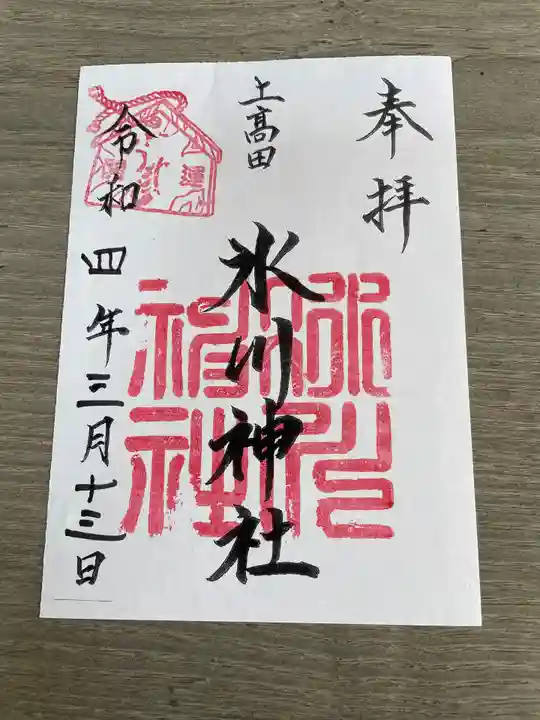 奉拝
上髙田
氷川神社
令和四年三月十三日